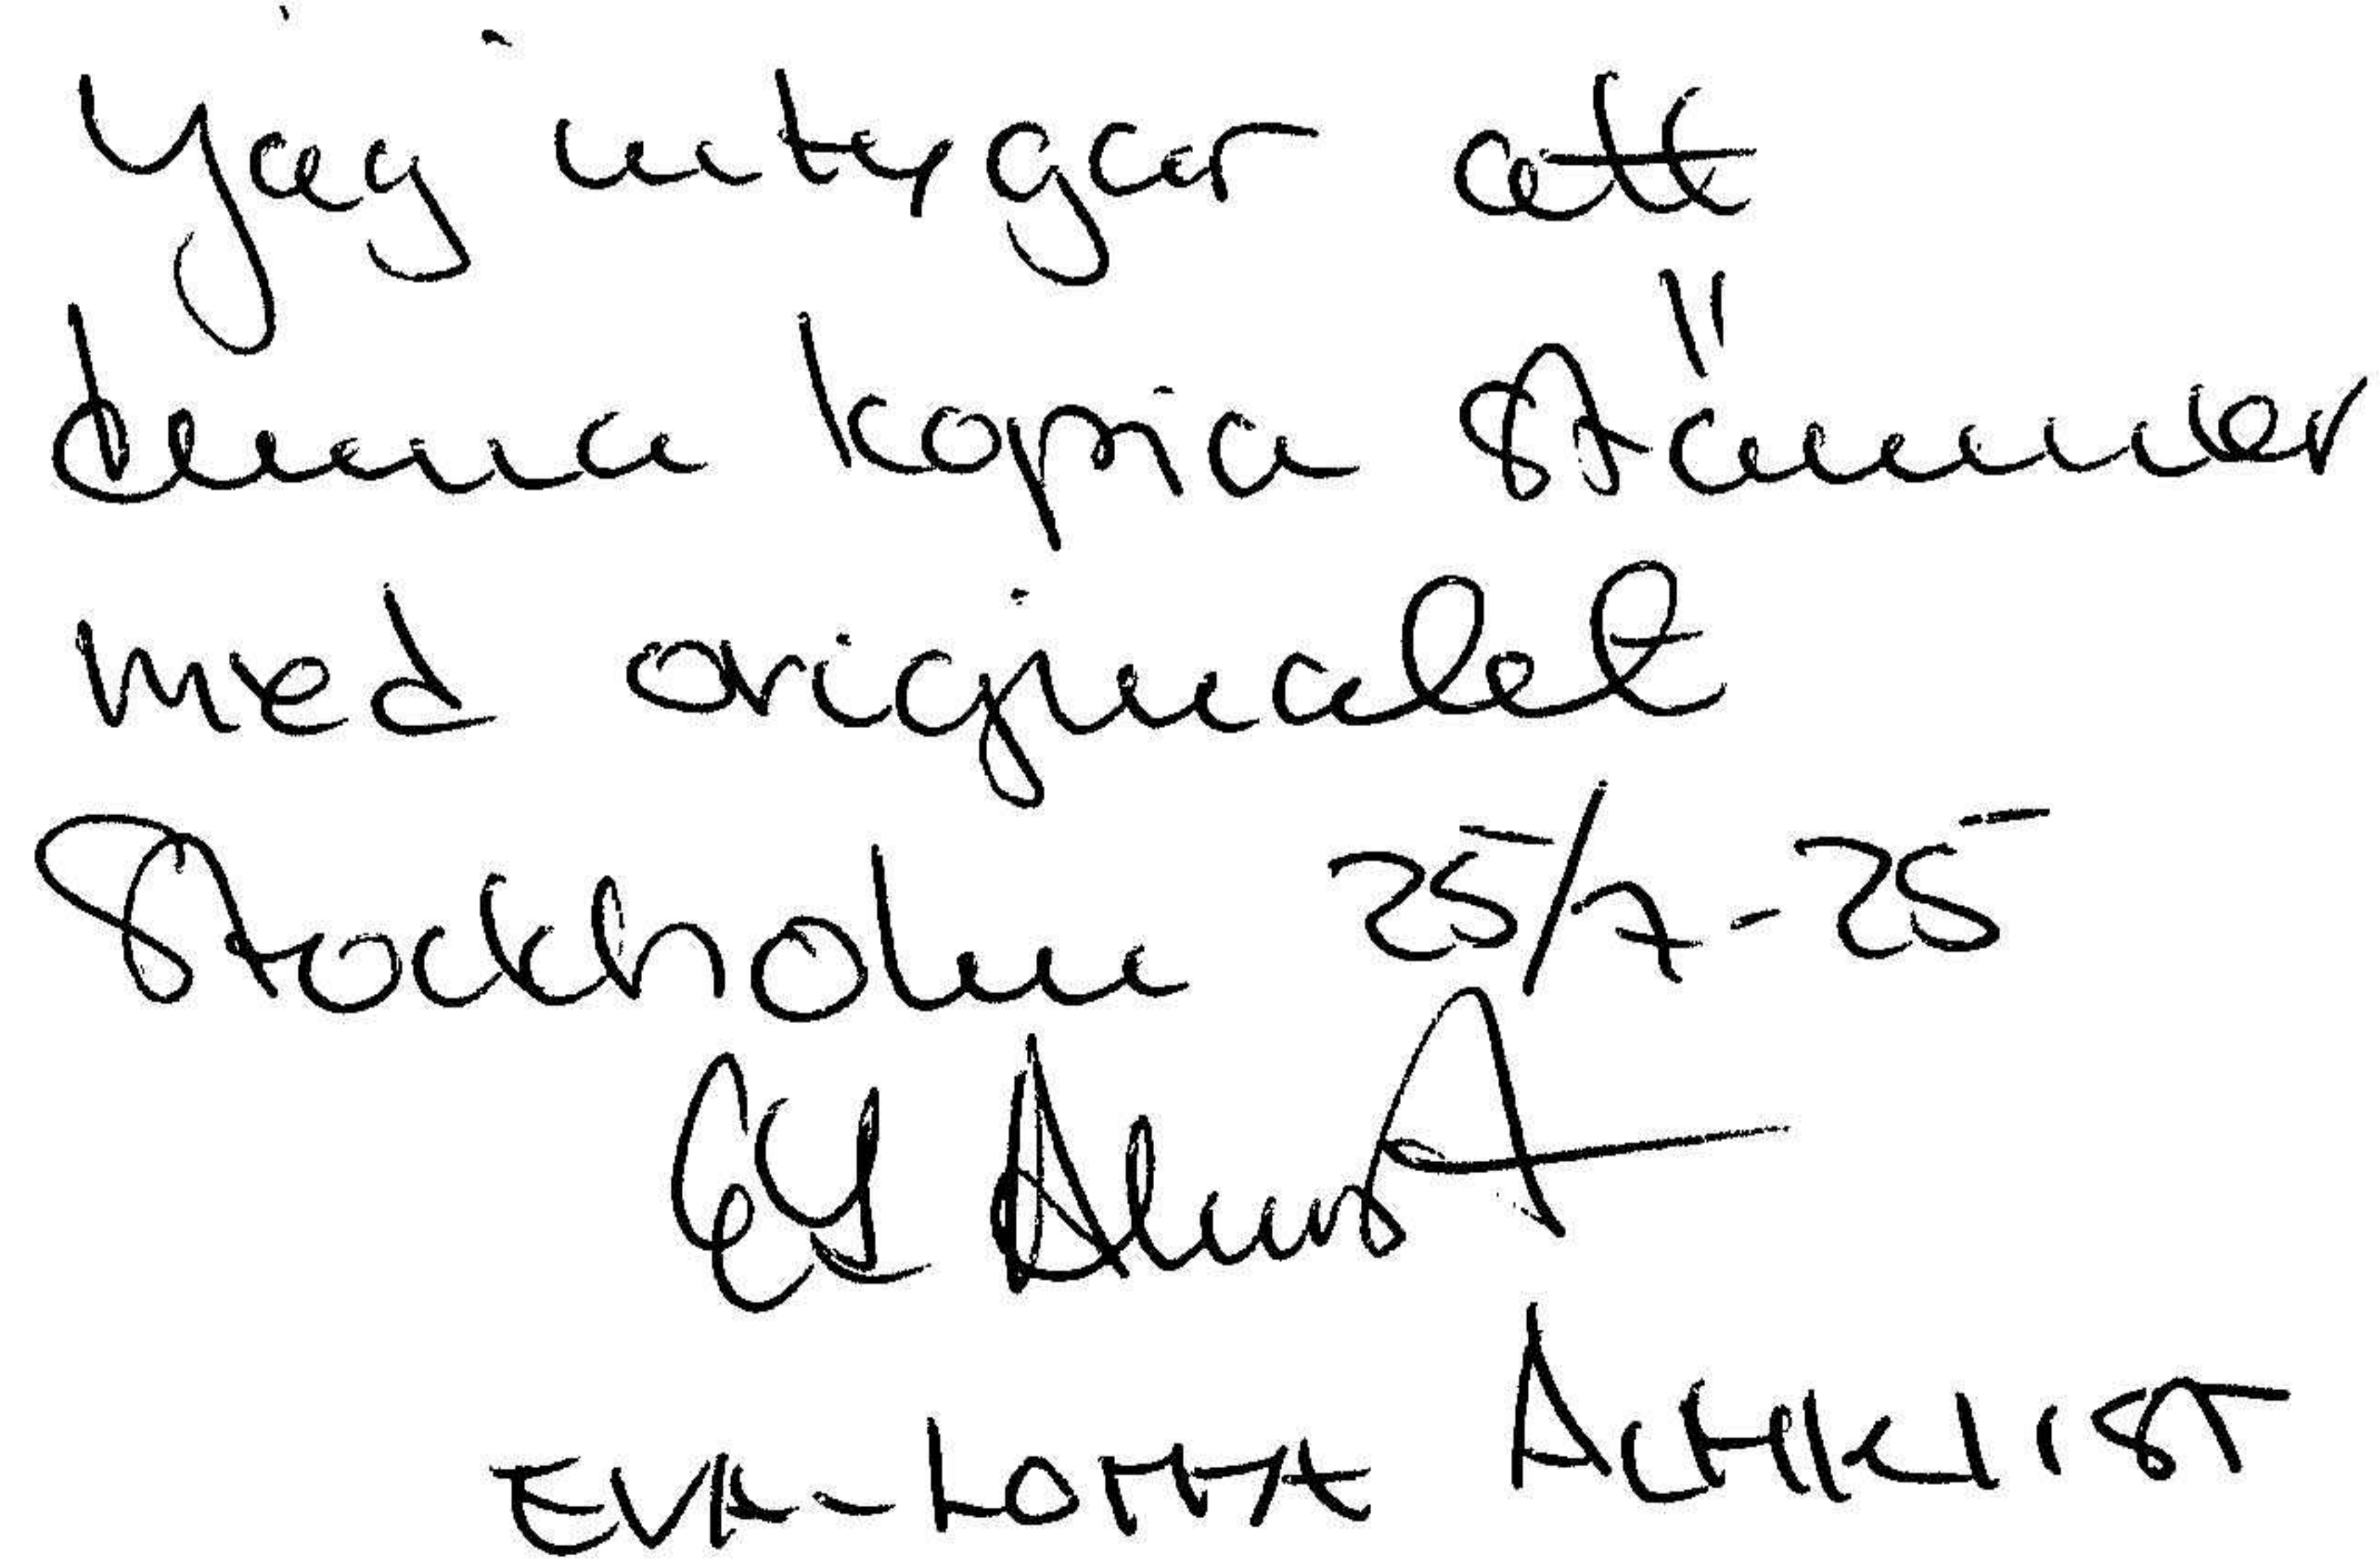 Jag intygar att
denna kopia stämmer
med originalet
Stockholm 25/7-25
EVA-LOTTA